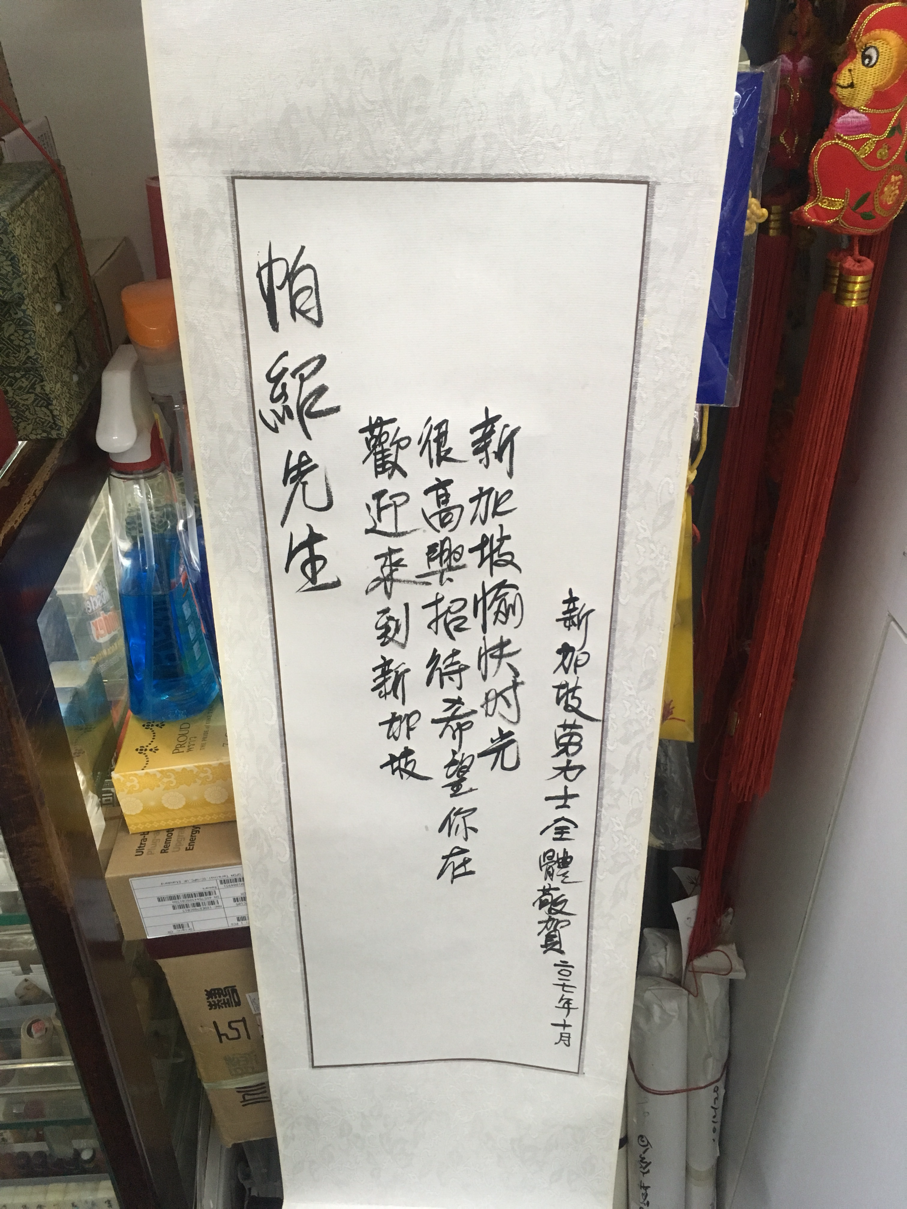 帕紹先生
歡迎來到新加坡
很高興招待希望你在
新加坡愉快时光
新加坡劳力士全體敬賀 二〇一七年十月
PROUD
Ultra-
Remo
Energy